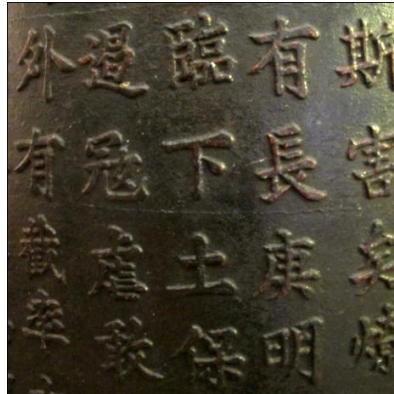 斯害矣燎
有長庚明
臨下土保
遏冦虐敢
外有截率